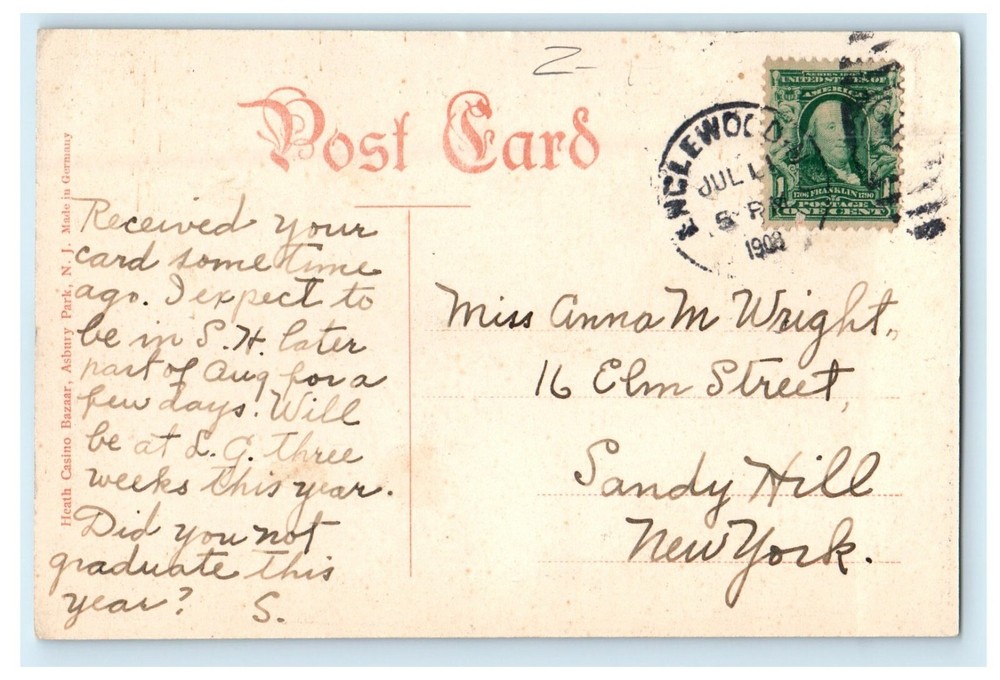 2-
Post Card
ENGLEWOOD
JUL
5-P
1908
SERIES 1902
UNITED STATES OF
AMERICA
1 1706 FRANKLIN 1790 1
POSTAGE
ONE CENT
Heath Casino Bazaar, Asbury Park, N. J. Made in Germany
Received your
card some time
ago. I expect to
be in S. H. later
part of Aug for a
few days. Will
be at L. G. three
weeks this year.
Did you not
graduate this
year? S.
Miss Anna M Wright,
16 Elm Street,
Sandy Hill
New York.